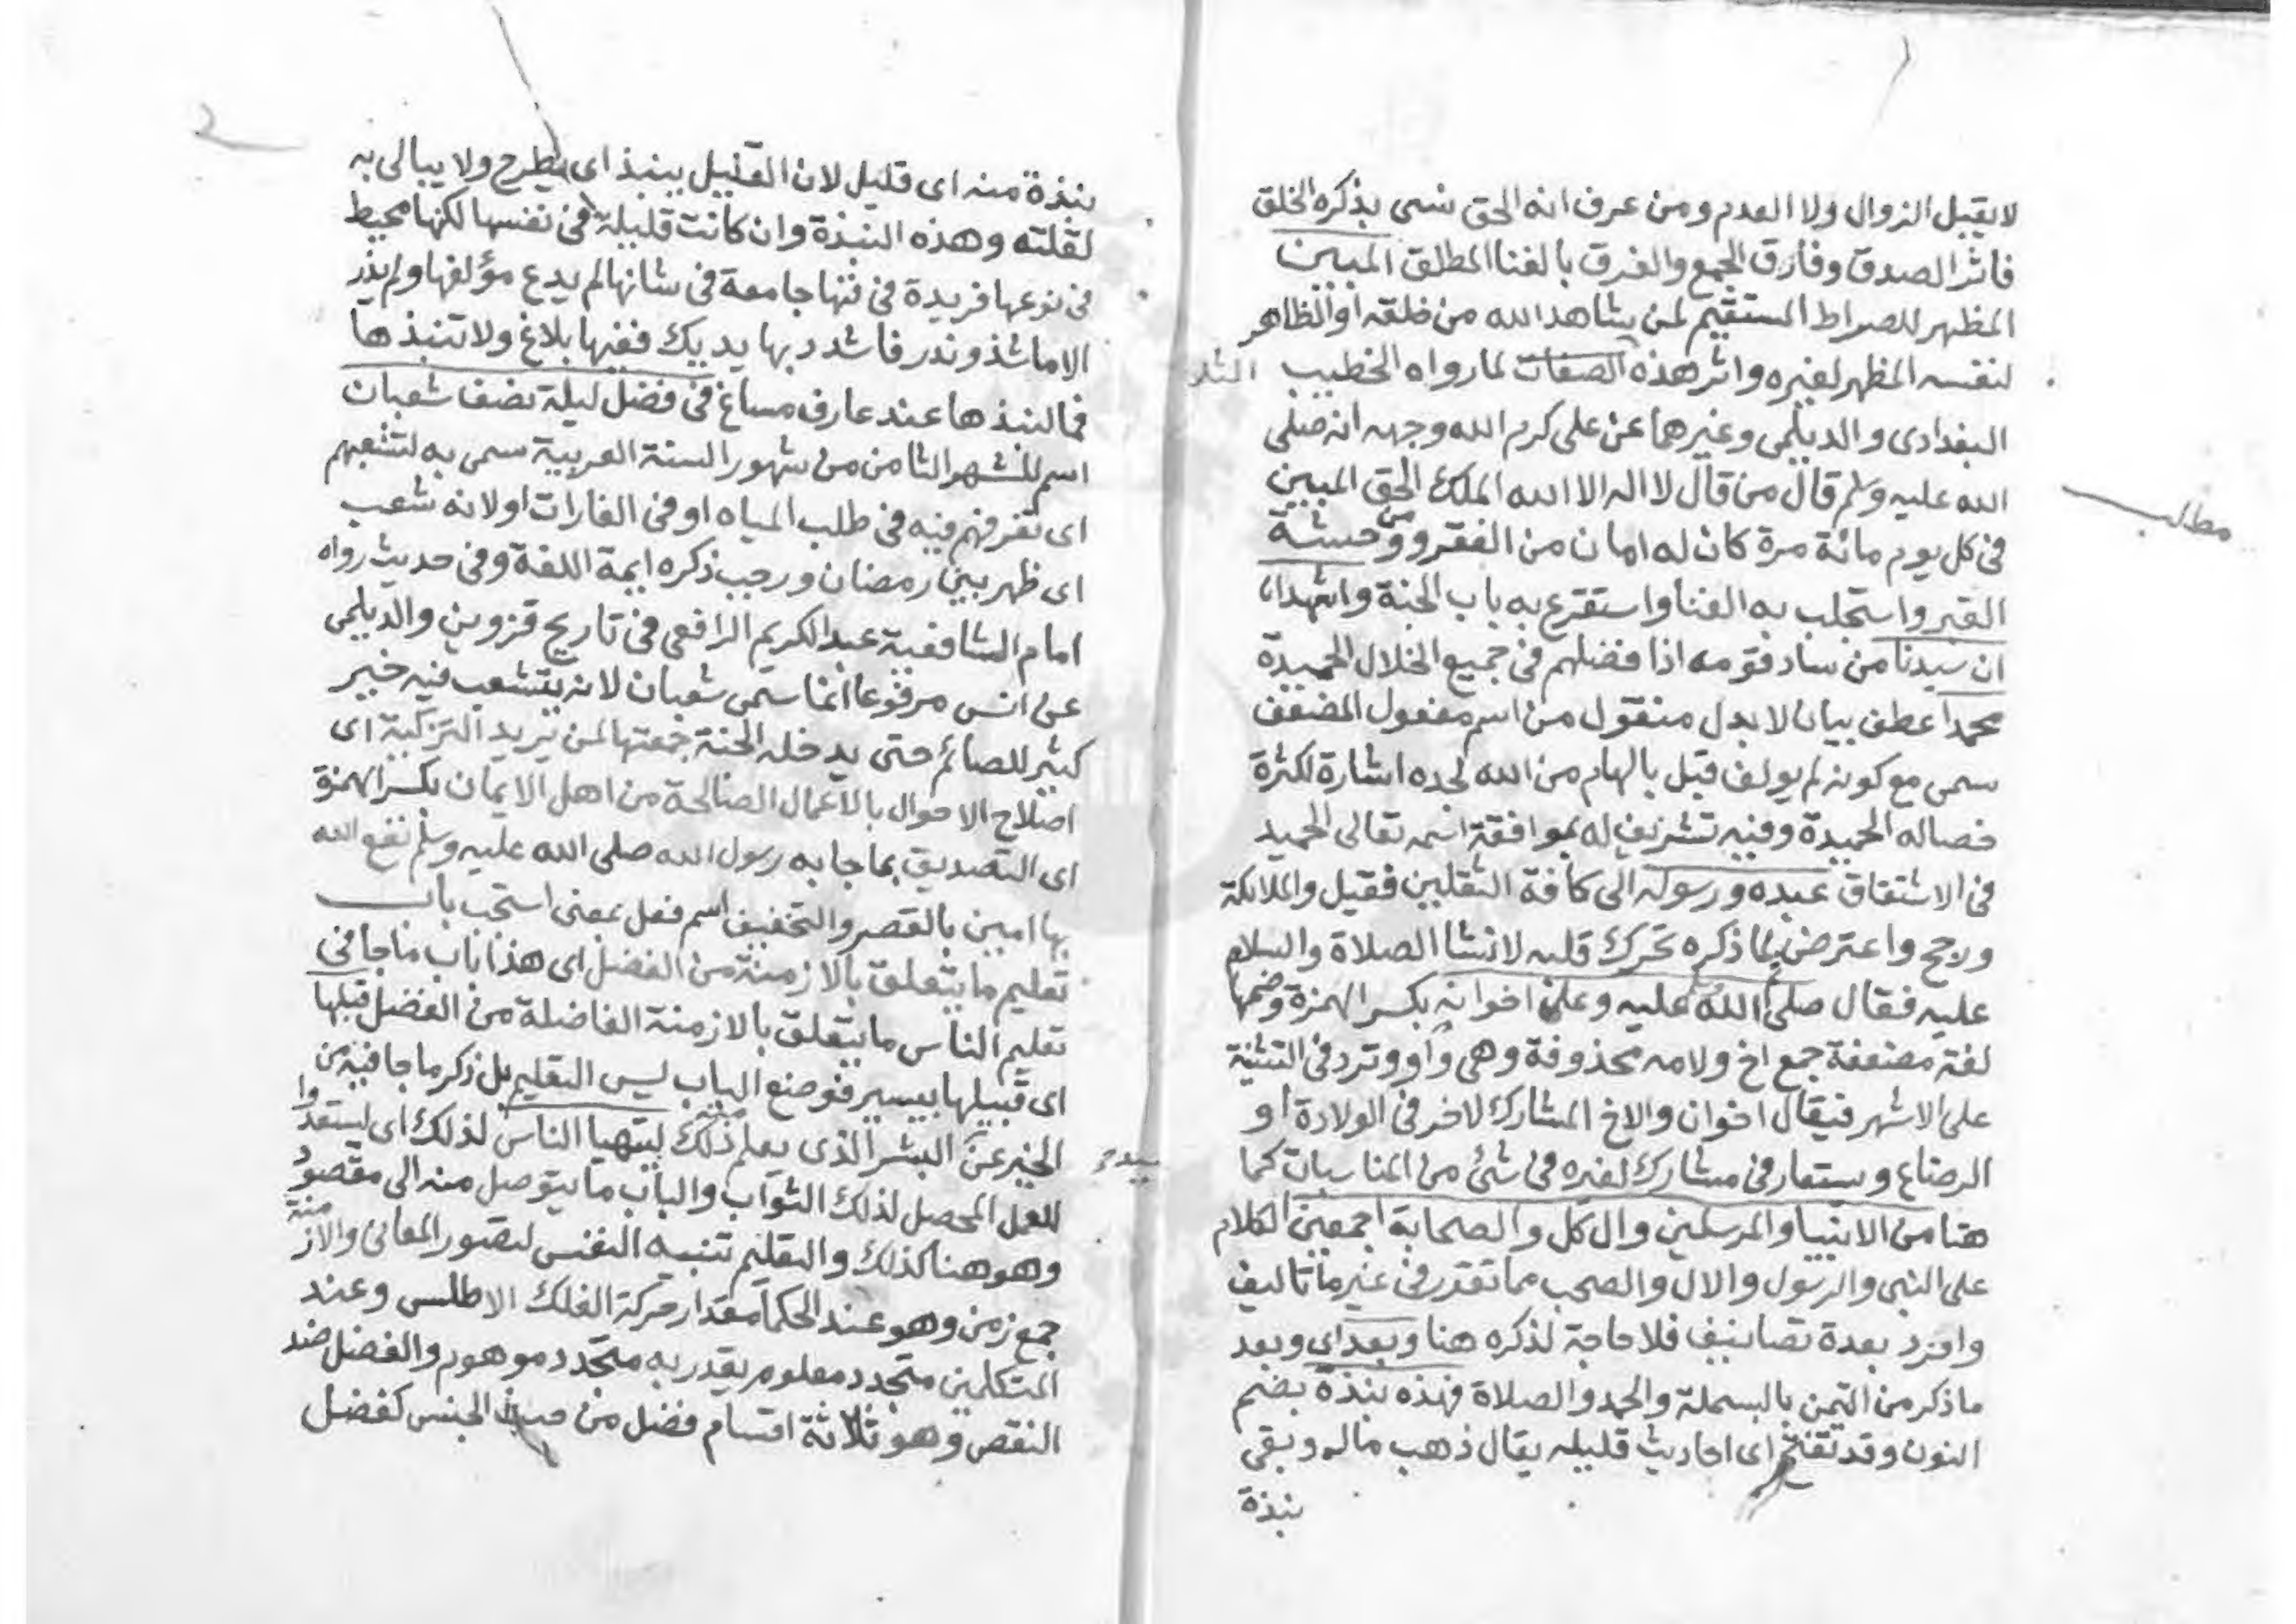 لا يقبل الزوال ولا العدم ومن عرف انه الحق نسى بذكره الخلق
فاثر الصدق وفارق الجمع والفرق بالفنا المطلق المبين
المظهر للصراط المستقيم لمن يشاهد الله من خلقه او الظاهر
لنفسه المظهر لغيره واثر هذه الصفات لما رواه الخطيب
البغدادى والديلمى وغيرهما عن على كرم الله وجهه انه صلى
مطلب
الله عليه وسلم قال من قال لا اله الا الله الملك الحق المبين
فى كل يوم مائة مرة كان له امان من الفقر ومن وحشة
القبر واستجلب به الغنا واستقرع به باب الجنة واشهد ان
ان سيدنا من ساد قومه اذا فضلهم فى جميع الخلال الحميدة
محمدا عطف بيان لا بدل منقول من اسم مفعول المضعف
سمى مع كونه لم يولف قبل بالهام من الله لجده اشارة لكثرة
خصاله الحميدة وفيه تشريف له بموافقة اسمه تعالى الحميد
فى الاشتقاق عبده ورسوله الى كافة الثقلين فقيل والملائكة
ورجح واعترض بما ذكره تحرك قلبه لانشا الصلاة والسلام
عليه فقال صلى الله عليه وعلى اخوانه بكسر الهمزة وضمها
لغة مضعفة جمع اخ ولامه محذوفة وهى واو وترد فى التثنية
على الاشهر فيقال اخوان والاخ المشارك لاخر فى الولادة او
الرضاع ويستعار فى مشارك لغيره فى شئ من المناسبات كما
هنا من الانبيا والمرسلين وال كل والصحابة اجمعين الكلام
على النبى والرسول والال والصحب مما تقدر فى غير ما تاليف
وافرد بعدة تصانيف فلا حاجة لذكره هنا وبعد اى وبعد
ما ذكر من التيمن بالبسملة والحمد والصلاة فهذه نبذة بضم
النون وقد تفتح اى احاديث قليله يقال ذهب ماله وبقى
نبذة
نبذة منه اى قليل لان القليل ينبذ اى يطرح ولا يبالى به
لقلته وهذه النبذة وان كانت قليلة فى نفسها لكنها محيط
فى نوعها فريدة فى فنها جامعة فى شانها لم يدع مؤلفها ولم يذر
الا ما شذ وندر فاشدد بها يديك ففيها بلاغ ولا تنبذها
فما لنبذها عند عارف مساغ فى فضل ليلة نصف شعبان
اسم للشهر الثامن من شهور السنة العربية سمى به لتشعبهم
اى تفرقهم فيه فى طلب المياه او فى الغارات او لانه شعب
اى ظهر بين رمضان ورجب ذكره ايمة اللغة وفى حديث رواه
امام الشافعية عبد الكريم الرافعى فى تاريخ قزوين والديلمى
عن انس مرفوعا انما سمى شعبان لانه يتشعب فيه خير
كثير للصائم حتى يدخله الجنة جمعتها لمن يريد التزكية اى
اصلاح الاحوال بالاعمال الصالحة من اهل الايمان بكسر الهمزة
اى التصديق بما جا به رسول الله صلى الله عليه وسلم نفع الله
بها امين بالقصر والتخفيف اسم فعل بمعنى استجب باب
تعليم ما يتعلق بالازمنة من الفضل اى هذا باب ما جا فى
تعليم الناس ما يتعلق بالازمنة الفاضلة من الفضل قبلها
اى قبيلها بيسير فوضع الباب ليس التعليم بل ذكر ما جا فيه من
الخبر عن البشر الذى يعلم منه ذلك ليتهيا الناس لذلك اى ليستعدوا
للعمل المحصل لذلك الثواب والباب ما يتوصل منه الى مقصود
وهو هنا كذلك والتعليم تنبيه النفس لتصور المعانى والازمنة
جمع زمن وهو عند الحكما مقدار حركة الفلك الاطلس وعند
المتكلمين متجدد معلوم يقدر به متجدد موهوم والفضل ضد
النقص وهو ثلاثة اقسام فضل من حيث الجنس كفضل